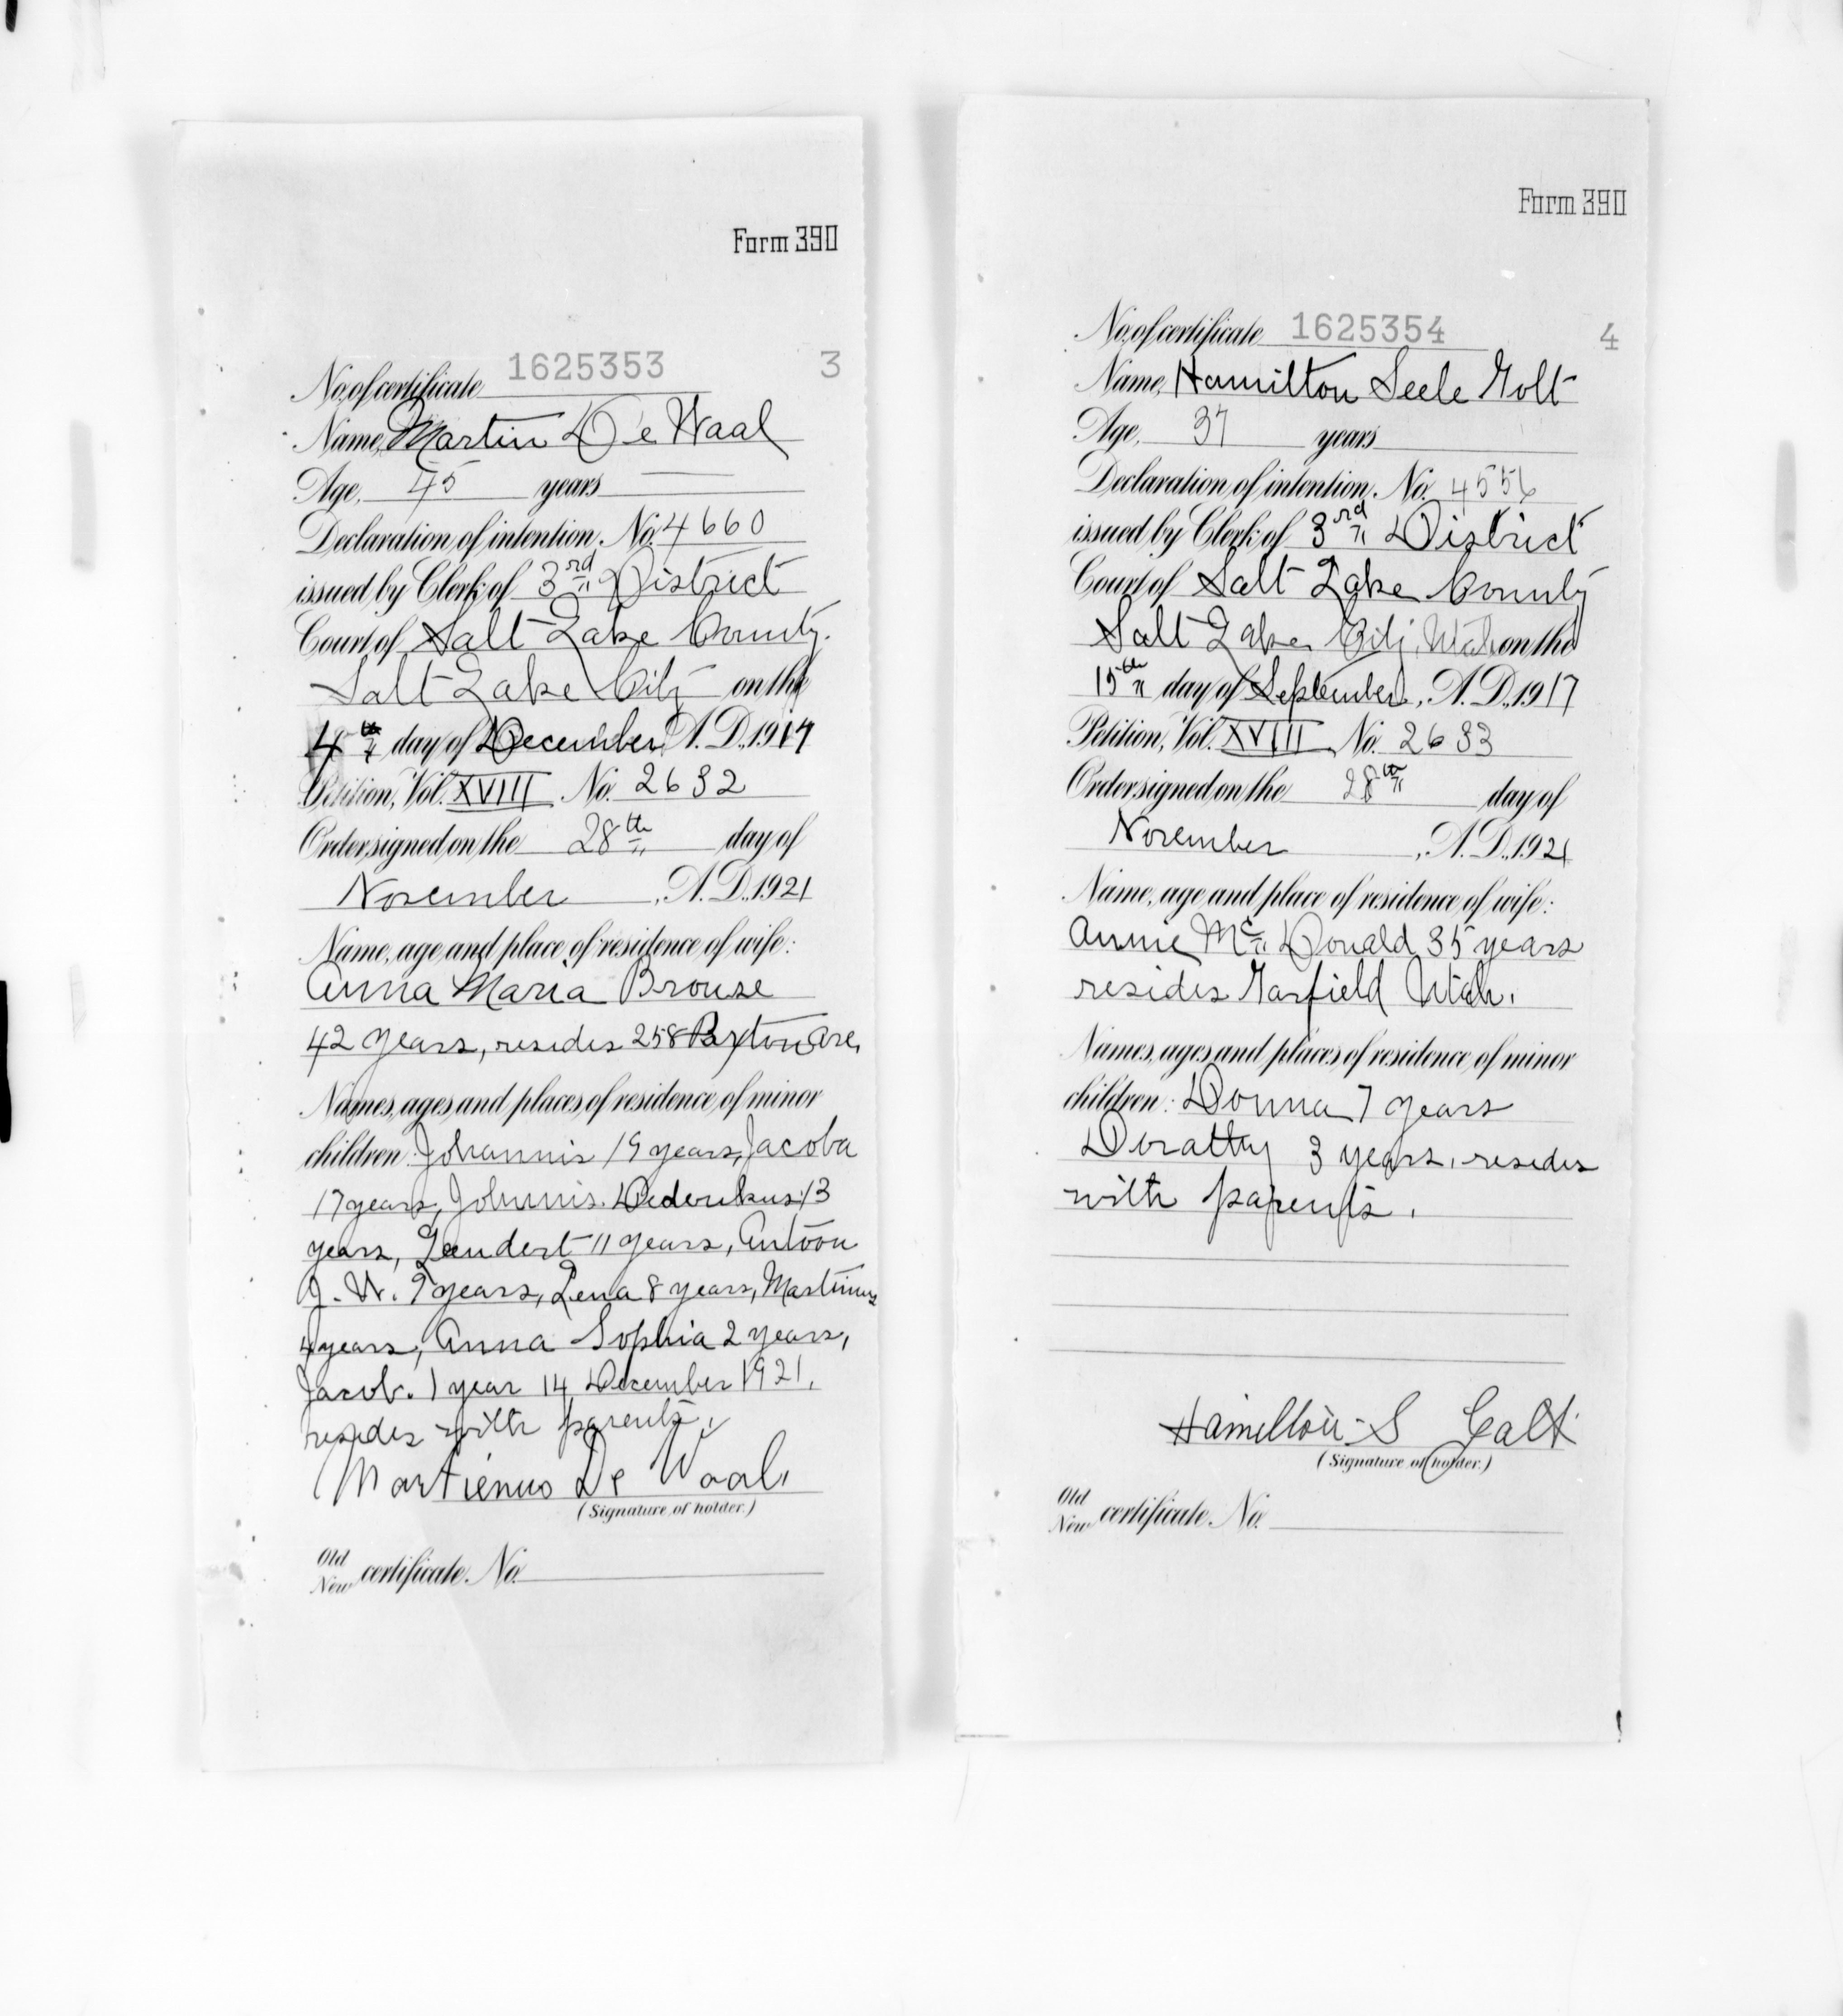 Form 390
No. of certificate 1625353 3
Name, Martin De Waal
Age, 45 years
Declaration of intention, No. 4660
issued by Clerk of 3rd District
Court of Salt Lake County.
Salt Lake City on the
4th day of December, A.D., 1917
Petition, Vol. XVIII No. 2632
Order signed on the 28th day of
November, A.D., 1921
Name, age and place of residence of wife:
Anna Maria Brouse
42 years, resides 258 Paxton Ave,
Names, ages and places of residence of minor
children: Johannis 19 years, Jacoba
17 years, Johannis. Dederikus 13
years, Leendert 11 years, Antoon
J. W. 9 years, Lena 8 years, Martinus
4 years, Anna Sophia 2 years,
Jacob. 1 year 14 December 1921,
resides with parents.
Martienus De Waal
(Signature of holder.)
Old
New certificate No.
Form 390
No. of certificate 1625354 4
Name, Hamilton Seele Golt
Age, 37 years
Declaration of intention, No. 4556
issued by Clerk of 3rd District
Court of Salt Lake County
Salt Lake City, Utah on the
15th day of September, A.D., 1917
Petition, Vol. XVIII No. 2633
Order signed on the 28th day of
November, A.D., 1921
Name, age and place of residence of wife:
Annie Mc Donald 35 years
resides Garfield Utah.
Names, ages and places of residence of minor
children: Donna 7 years
Doratty 3 years, resides
with parents.
Hamilton S Galt
(Signature of holder.)
Old
New certificate No.